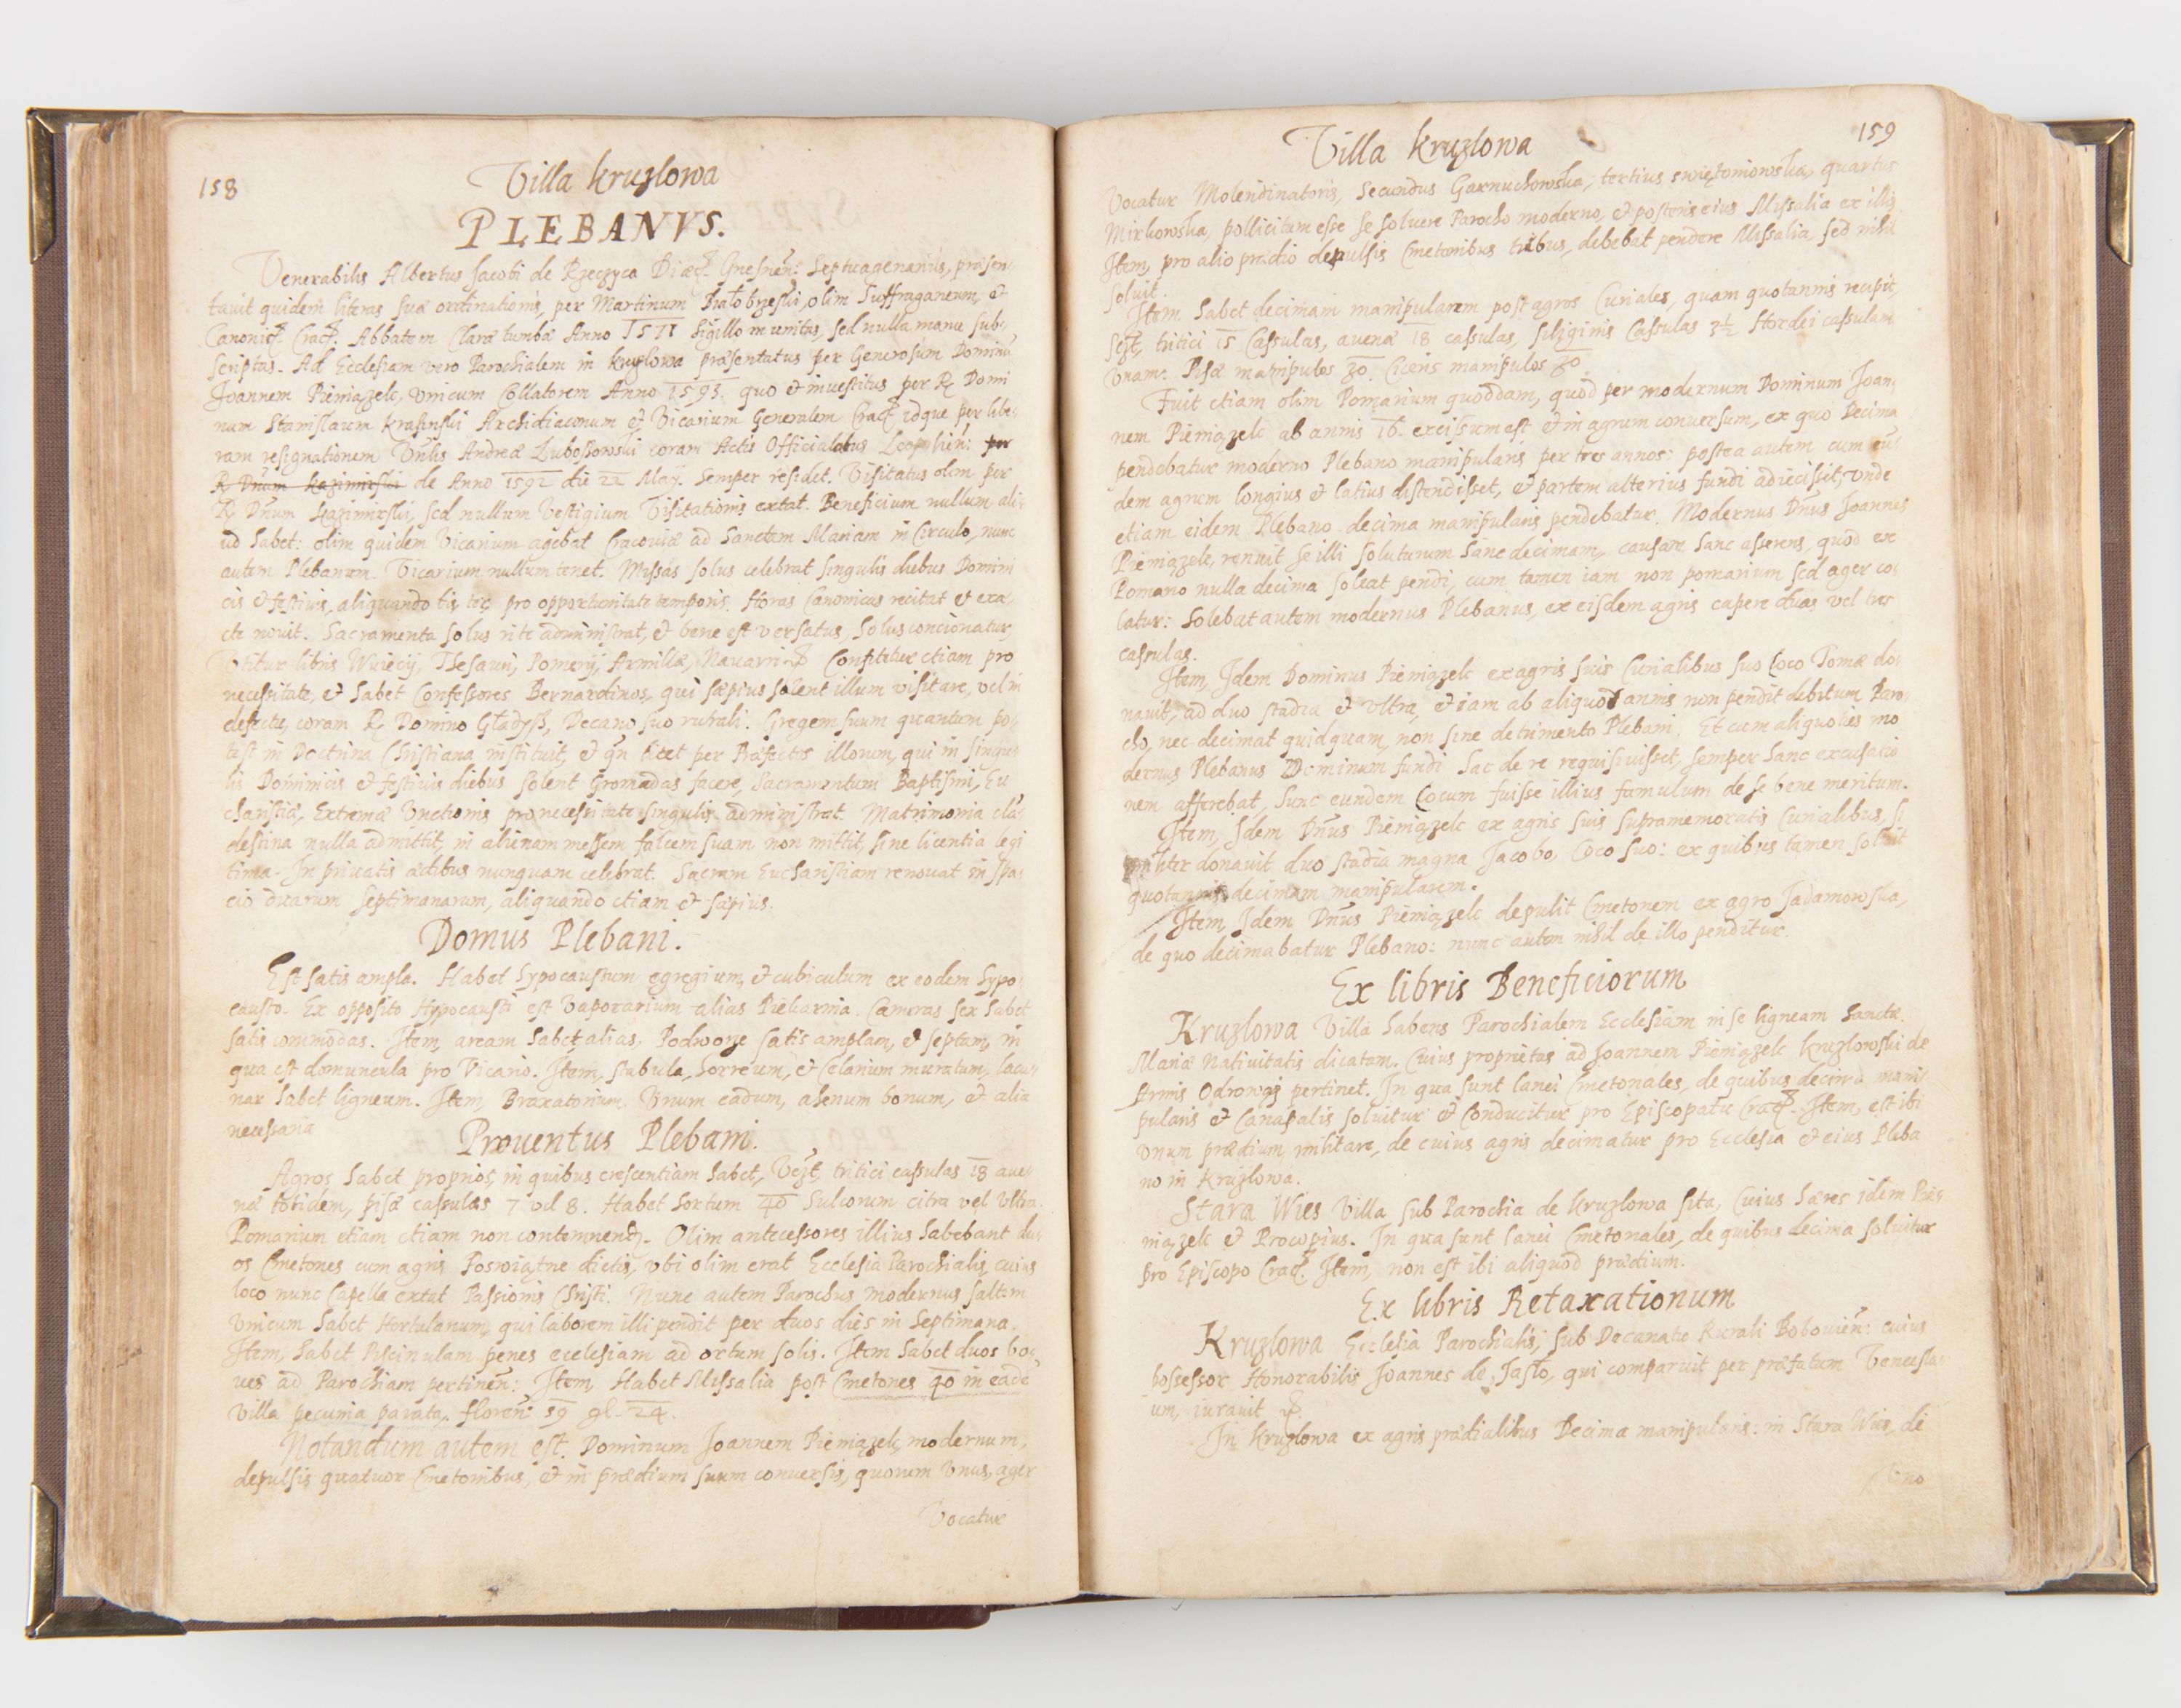 158
Villa Kruzlowa
PLEBANVS.
Venerabilis Albertus Jacobi de Rzeczyca Diæc. Gnesnen: Septuagenarius, præsen-
tauit quidem literas suæ ordinationis, per Martinum Białobrzeski, olim Suffraganeum, et
Canonic. Crac. Abbatem Claræ tumbæ Anno 1571 sigillo munitas, sed nulla manu sub-
scriptas. Ad Ecclesiam vero Parochialem in Kruzlowa præsentatus per Generosum Dominu
Joannem Pieniązek, vnicum Collatorem Anno 1593. quo et inuestitus per R. Domi
num Stanislaum Krasinski Archidiaconum et Vicarium Generalem Crac. idque per libe-
ram resignationem Vnlis Andreæ Lubossowski coram Actis Officialatus per
R. Dnum Kazimirski de Anno 1592 die 22 May. Semper residet. Visitatus olim per
R. Dnum Kazimirski, sed nullum Vestigium Visitationis extat. Beneficium nullum ali-
ud habet: olim quidem Vicarium agebat Cracouiæ ad Sanctam Mariam in Circulo, nunc
autem Plebanum. Vicarium nullum tenet. Missas solus celebrat singulis diebus Domini
cis et festiuis, aliquando bis, ter, pro opportunitate temporis. Horas Canonicas recitat et exa-
cte nouit. Sacramenta solus rite administrat, et bene est versatus, Solus concionatur,
Vtitur libris Wuiecij, Thesauri, Pomerij, Armillæ, Nauarri Confitetur etiam pro
necessitate, et habet Confessores Bernardinos, qui sæpius solent illum visitare, vel in
defectu, coram R. Domino Gładysz, Decano suo rurali. Gregem suum quantum po-
test in Doctrina Christiana instituit, et per Præfectos illorum, qui in singu-
lis Dominicis et festiuis diebus solent Gromadas facere, Sacramentum Baptismi, Eu
charistiæ, Extremæ Vnctionis pro necessitate singulis administrat. Matrimonia clā-
destina nulla admittit, in alienam messem falcem suam non mittit, sine licentia legi
tima. In priuatis ædibus nunquam celebrat. Sacram Eucharistiam renouat in spa-
cio duarum septimanarum, aliquando etiam et sæpius.
Domus Plebani.
Est satis ampla. Habet hypocaustum egregium, et cubiculum ex eodem hypo-
causto. Ex opposito Hypocausti est Vaporarium alias Piekarnia. Cameras sex habet
satis commodas. Item, aream habet alias, Podworze satis amplam, et septam, in
qua est domuncula pro Vicario. Item, stabula, horreum, et Celarium muratum, lacu-
nar habet ligneum. Item, Braxatorium. Vnum cadum, ahenum bonum, et alia
necessaria
Prouentus Plebani.
Agros habet proprios, in quibus crescentiam habet, Vczt, tritici cassulas 18 aue-
næ totidem, pisæ cassulas 7 vel 8. Habet hortum 40 Sulcorum citra vel vltra.
Pomarium etiam etiam non contemnend. Olim antecessores illius habebant du-
os Cmetones cum agris Poswiątne dictis, vbi olim erat Ecclesia Parochialis, cuius
loco nunc Capella extat Passionis Christi. Nunc autem Parochus modernus saltem
vnicum habet Hortulanum, qui laborem illi pendit per duos dies in Septimana.
Item, habet Piscinulam penes ecclesiam ad ortum solis. Item habet duos bo-
ues ad Parochiam pertinen: Item, Habet Missalia post Cmetones 40 in eadē
Villa pecunia parata, floren: 59 gl. 24.
Notandum autem est. Dominum Joannem Pieniązek, modernum,
depulsis quatuor Cmetonibus, et in prædium suum conuersis, quorum vnus, ager
Vocatur
159
Villa Kruzlowa
Vocatur Molendinatoris, Secundus Garnuchowska, tertius swiętoniowska, quartus
Mirkowska, pollicitum esse se soluere Parocho moderno, et posteris eius Missalia ex illis
Item, pro alio prædio depulsis Cmetonibus tribus, debebat pendere Missalia, sed nihil
soluit.
Item habet decimam manipularem post agros Curiales, quam quotannis recipit,
sczt, tritici 15 Cassulas, auenæ 18 cassulas, siliginis Cassulas 3½ Hordei cassulam
vnam: Pisæ manipulos 30. Ciceris manipulos 30.
Fuit etiam olim Pomarium quoddam, quod per modernum Dominum Joan-
nem Pieniązek ab annis 16. excissum est, et in agrum conuersum, ex quo Decima
pendebatur moderno Plebano manipularis per tres annos: postea autem cum eū-
dem agrum longius et latius distendisset, et partem alterius fundi adiecisset, vnde
etiam eidem Plebano decima manipularis pendebatur. Modernus Dnus Joannes
Pieniązek, renuit se illi soluturum hanc decimam, causam hanc asserens, quod ex
Pomario nulla decima soleat pendi, cum tamen iam non pomarium sed ager co-
latur: Solebat autem modernus Plebanus, ex eisdem agris capere duas vel tres
cassulas.
Item, Idem Dominus Pieniązek ex agris suis Curialibus suo Coco Tomæ do-
nauit, ad duo stadia et vltra, et iam ab aliquot annis non pendit debitum Paro-
cho, nec decimat quidquam, non sine detrimento Plebani. Et cum aliquoties mo
dernus Plebanus Dominum fundi hac de re requisiuisset, semper hanc excusatio
nem afferebat, hunc eundem Cocum fuisse illius famulum de se bene meritum.
Item, Idem Dnus Pieniązek ex agris suis supramemoratis Curialibus, si
militer donauit duo stadia magna Jacobo, Coco suo: ex quibus tamen soluit
quotannis decimam manipularem.
Item, Idem Dnus Pieniązek depulit Cmetonem ex agro Jadamowska,
de quo decimabatur Plebano: nunc autem nihil de illo penditur.
Ex libris Beneficiorum
Kruzlowa Villa habens Parochialem Ecclesiam in se ligneam Sanctæ
Mariæ Natiuitatis dicatam. Cuius proprietas ad Joannem Pieniązek Kruzlowski de
Armis Odrowąs pertinet. In qua sunt lanei Cmetonales, de quibus decima mani-
pularis et Canapalis soluitur et Conducitur pro Episcopatu Crac. Item, est ibi
vnum prædium militare, de cuius agris decimatur pro Ecclesia et eius Pleba
no in Kruzlowa.
Stara Wies Villa sub Parochia de Kruzlowa sita, Cuius hæres idem Pie-
niązek et Procopius. In qua sunt lanei Cmetonales, de quibus decima soluitur
pro Episcopo Crac. Item, non est ibi aliquod prædium.
Ex libris Retaxationum
Kruzlowa Ecclesia Parochialis, sub Decanatu Rurali Bobouien: cuius
possessor Honorabilis Joannes de Jasło, qui comparuit per præfatum Vencesla-
um, iurauit
In Kruzlowa ex agris prædialibus Decima manipularis: in Stara Wies, de
Vno